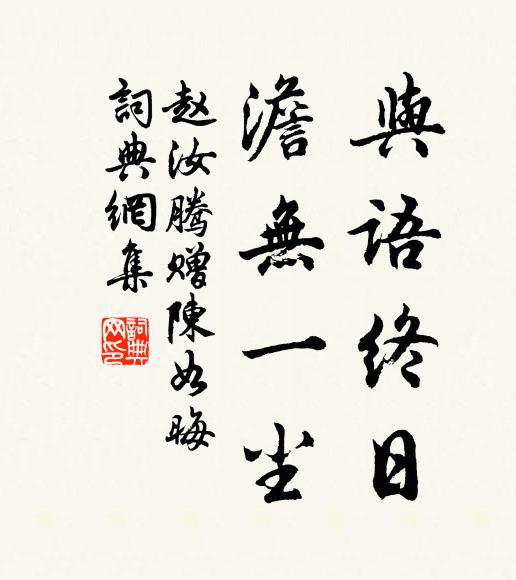 與語終日
澹無一尘
赵汝腾赠陳如晦
詞典網集
詞典
网印